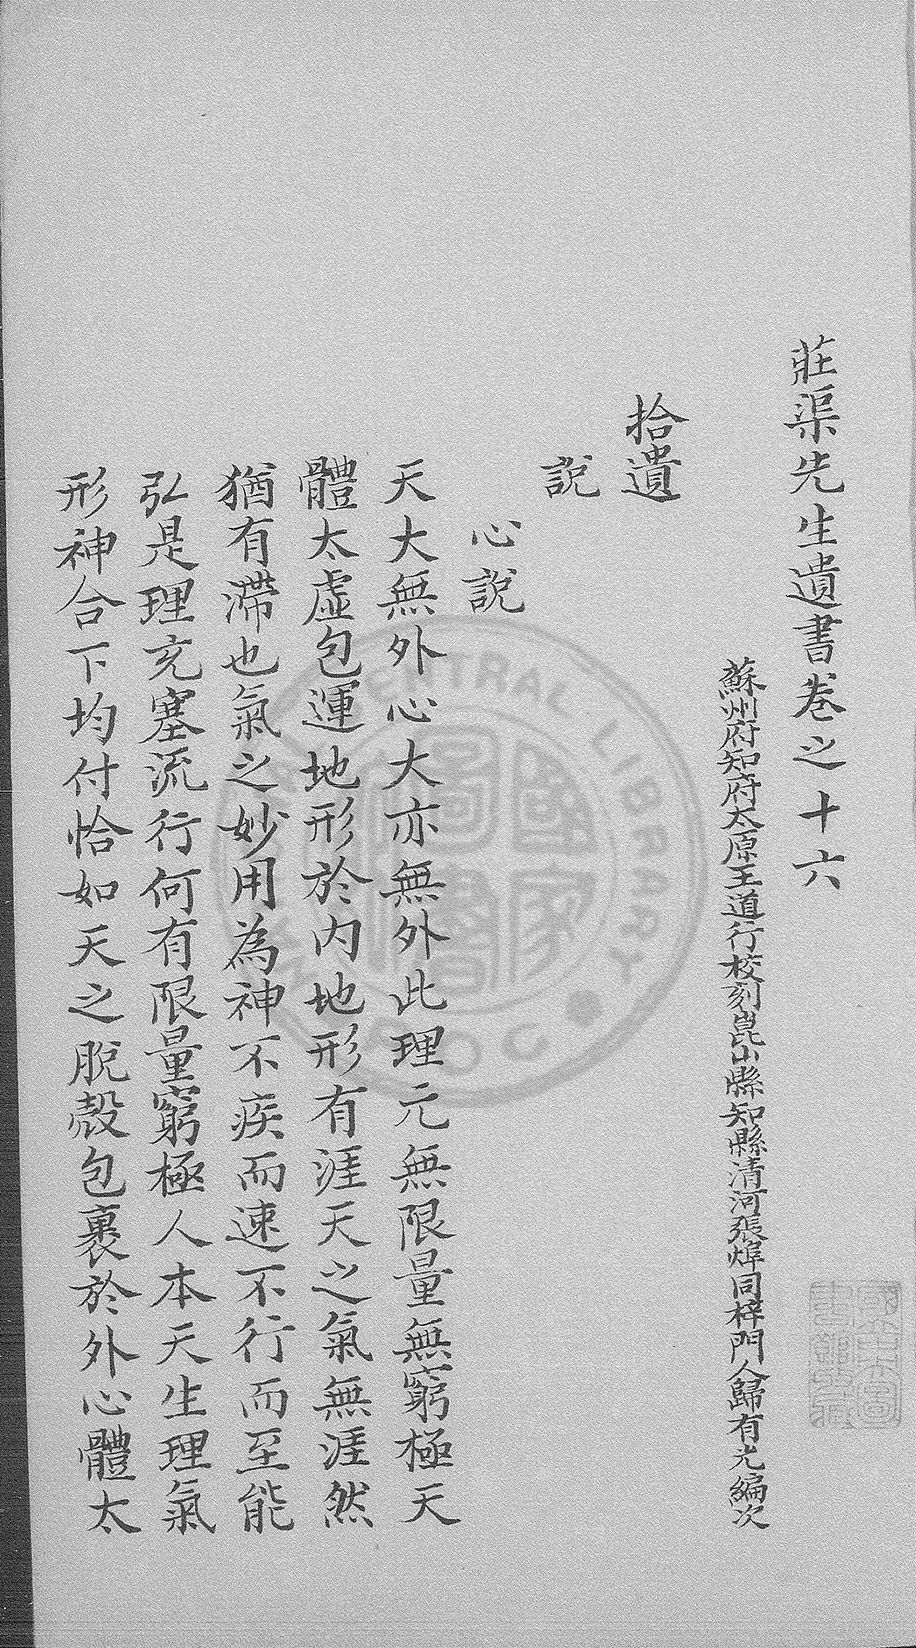 莊渠先生遺書卷之十六
蘇州府知府太原王道行校刻崑山縣知縣清河張焯同梓門人歸有光編次
拾遺
說
心說
天大無外心大亦無外此理元無限量無窮極天
體太虛包運地形於內地形有涯天之氣無涯然
猶有滯也氣之妙用為神不疾而速不行而至能
弘是理充塞流行何有限量窮極人本天生理氣
形神合下均付恰如天之脫殼包裹於外心體太
國家圖書館
CENTRAL LIBRARY